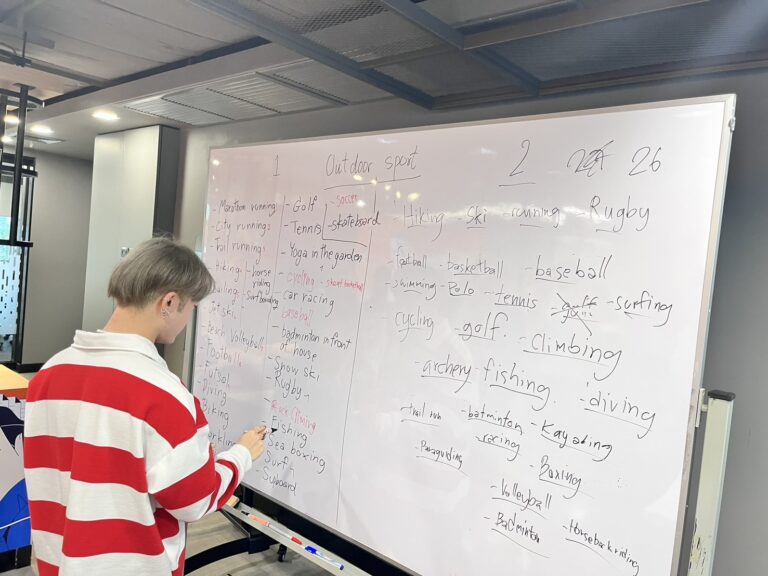 1 Outdoor sport 2 26
- Marathon runnings
- City runnings
- Trail runnings
- Hiking
- horse riding
- Surfboarding
- Jet ski
- Beach Volleyball
- Football
- Futsal
- Diving
- Golf
- soccer
- Tennis
- skateboard
- Yoga in the garden
- cycling
- car racing
- baseball
- badminton in front
of house
- Snow ski
- Rugby
- Fishing
- Sea boxing
- Surf
- Suboard
- Hiking - ski - running - Rugby
- football - basketball - baseball
- swimming - Polo - tennis - surfing
- cycling - golf - Climbing
- archery - fishing - diving
- trail run - batminton - Kayading
- racing
- Paraguiding - Boxing
- Volleyball
- Badminton - Horseback riding